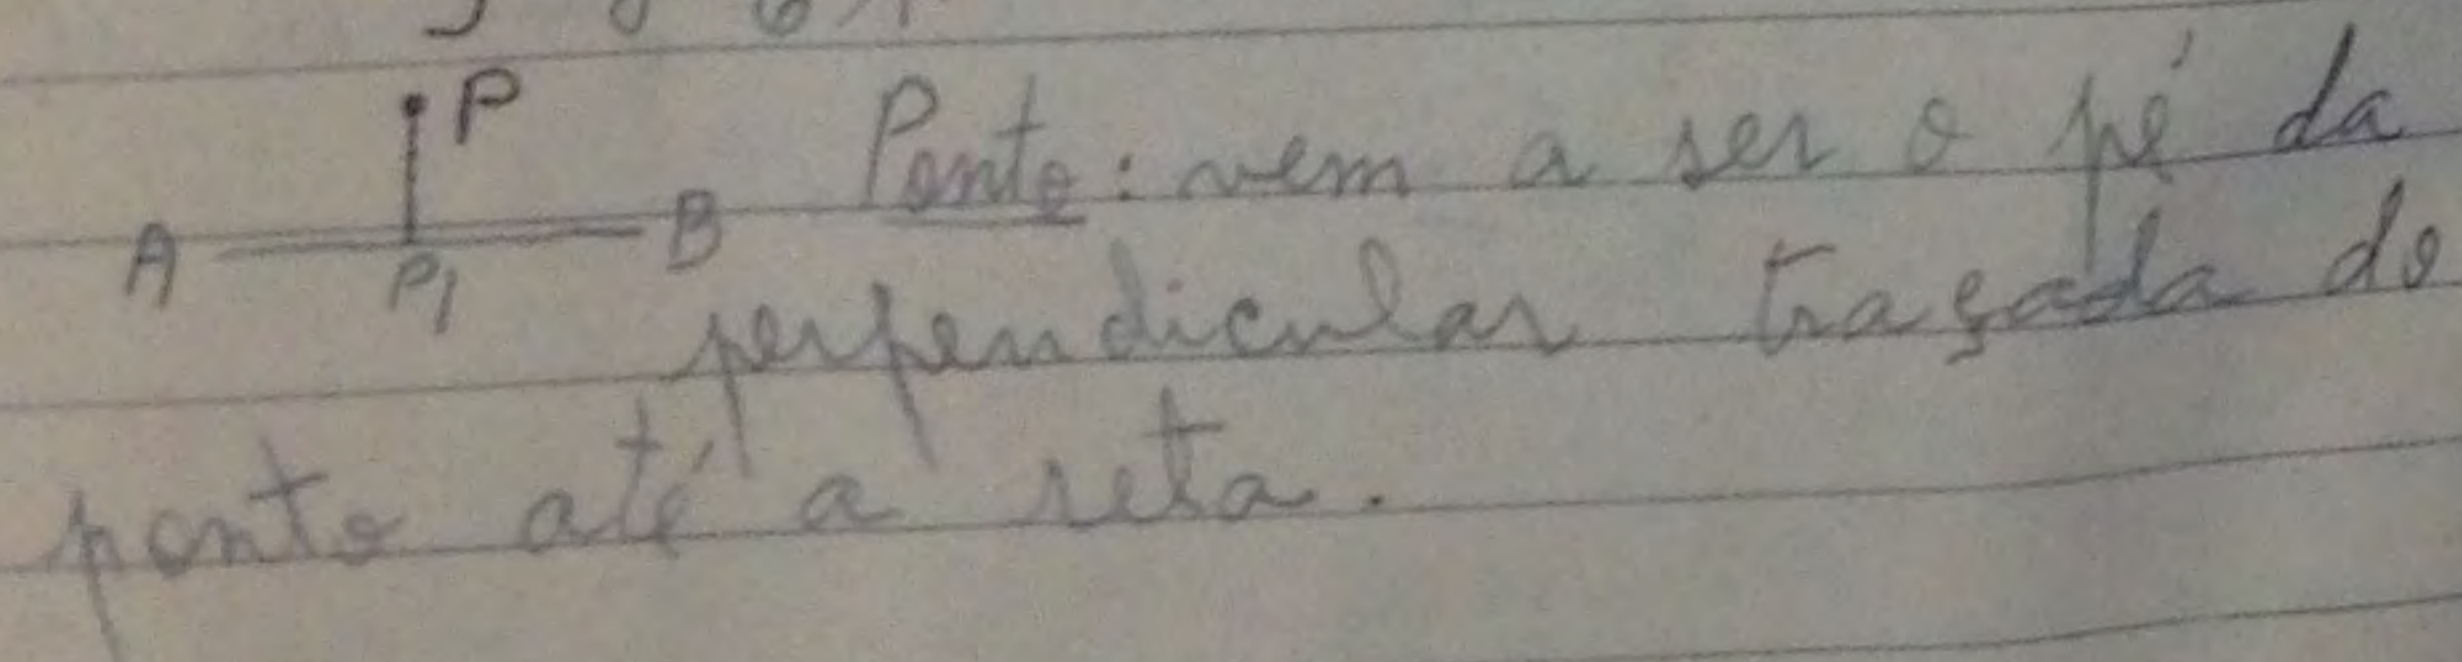 P
Ponto: vem a ser o pé da
A B
P1
perpendicular traçada do
ponto até a reta.